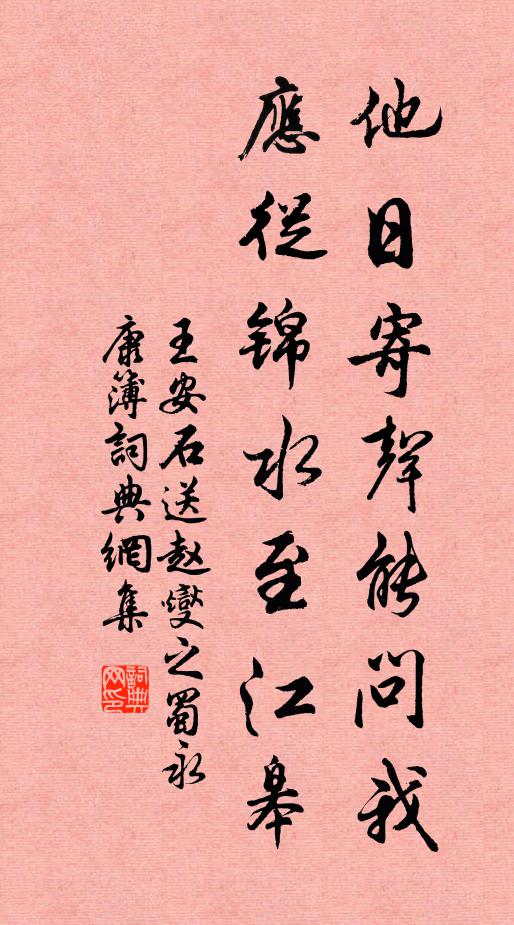 他日寄聲能問我
應從錦水至江皋
王安石送赵燮之蜀永
康簿詞典網集
詞典
网印